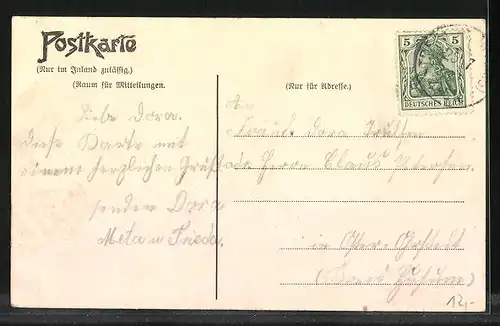 Postkarte
(Nur im Inland zulässig.)
(Raum für Mitteilungen.)
(Nur für Adresse.)
5 5
DEUTSCHES REICH
Liebe Dora.
Diese Karte mit
einem herzlichen Gruß
senden Dora
Meta u Frieda.
An
Fräul. Dora
adr. Herrn Claus Petersen.
in Oster-Ohrstedt
(Kreis Husum)
12,-